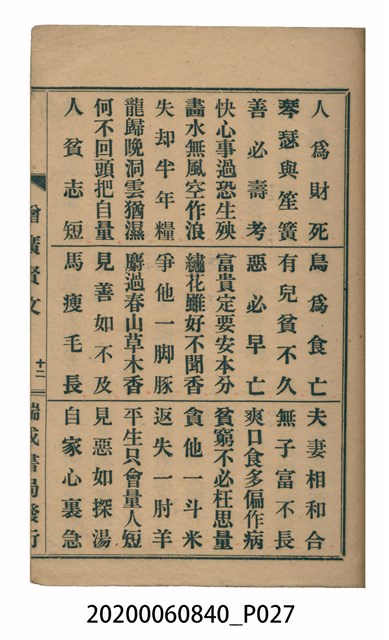 人爲財死 鳥爲食亡 夫妻相和合
琴瑟與笙簧 有兒貧不久 無子富不長
善必壽考 惡必早亡 爽口食多偏作病
快心事過恐生殃 富貴定要安本分 貧窮不必枉思量
畵水無風空作浪 繡花雖好不聞香 貪他一斗米
失却半年糧 爭他一脚豚 返失一肘羊
龍歸晚洞雲猶濕 麝過春山草木香 平生只會量人短
何不回頭把自量 見善如不及 見惡如探湯
人貧志短 馬瘦毛長 自家心裏急
增廣賢文 十二 瑞成書局發行
20200060840_P027